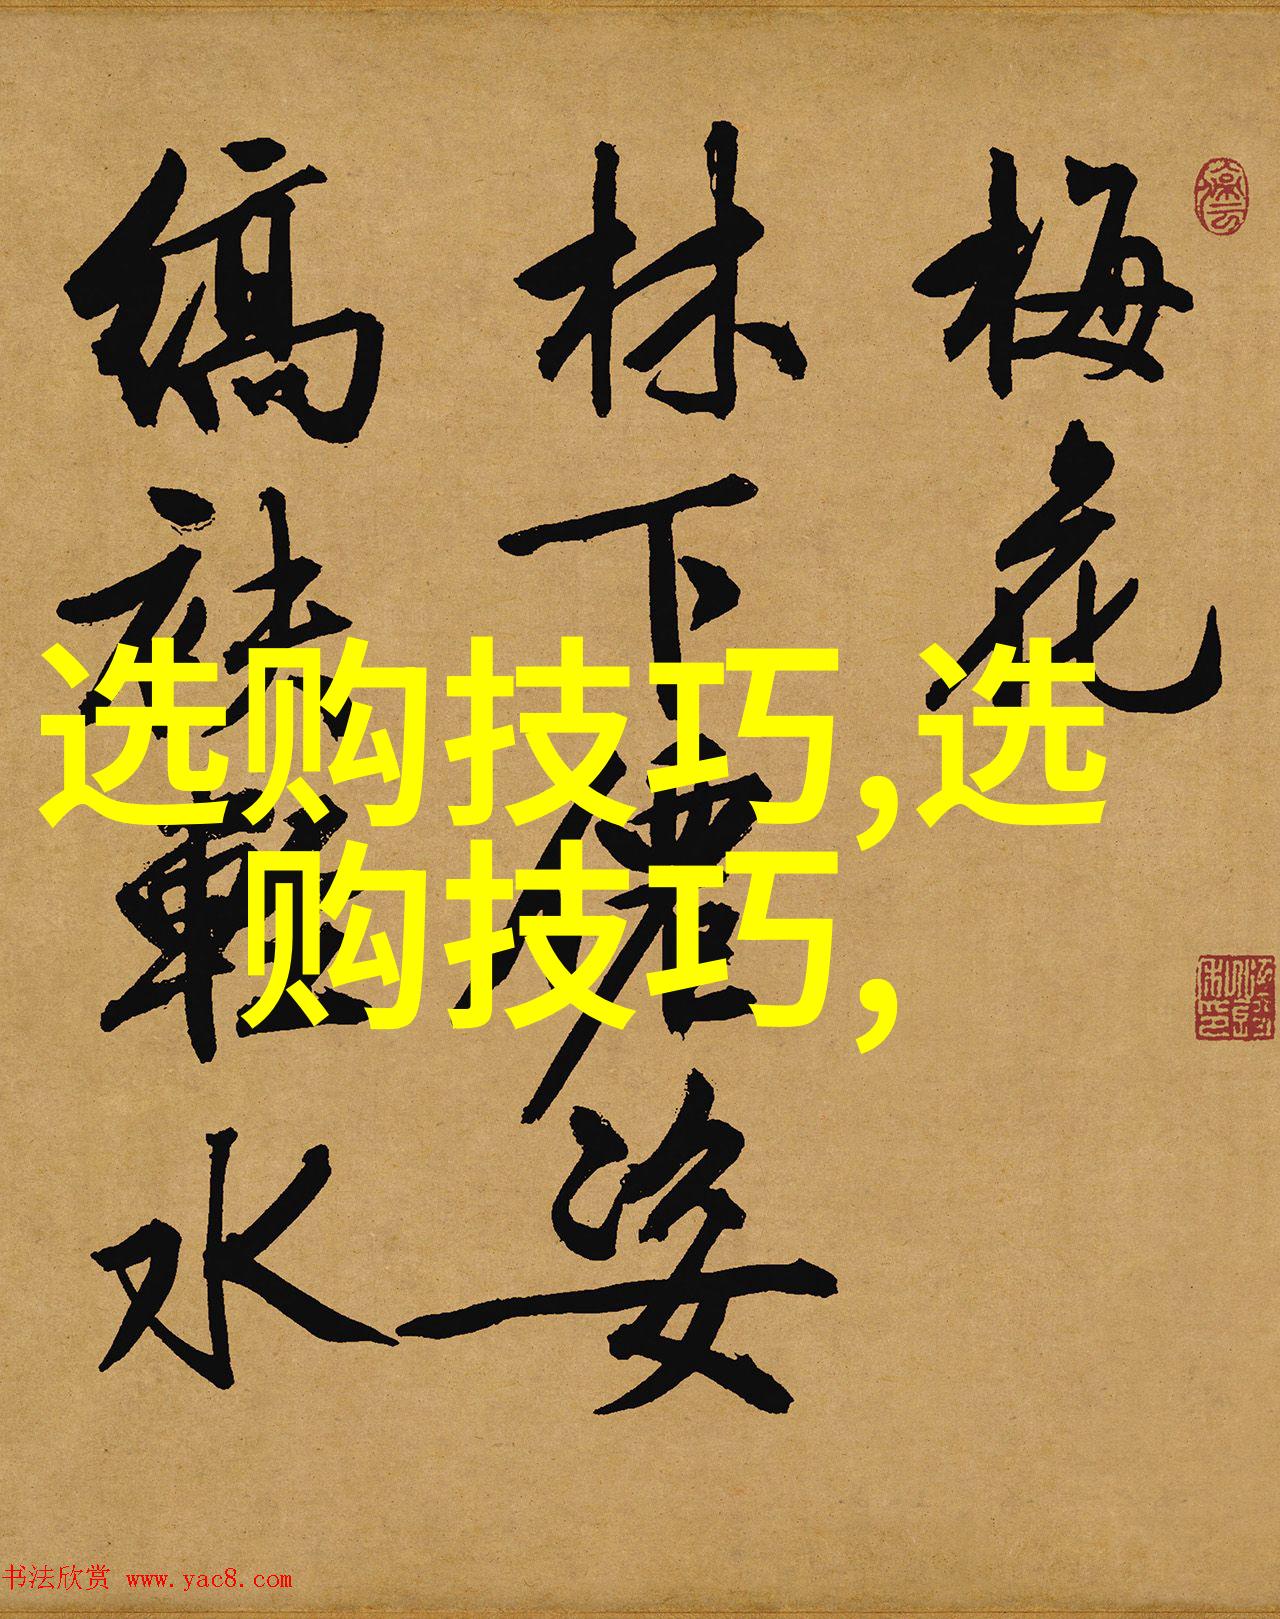 梅花
林下仙姿
缟袂轻水
选购技巧,选
购技巧,
书法欣赏 www.yac8.com